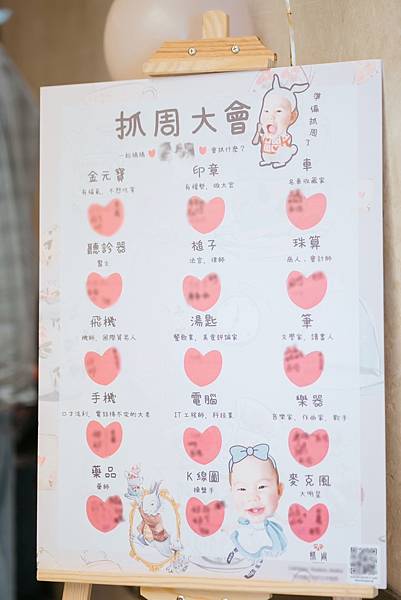 準備抓周了
抓周大會
一起猜猜 會抓什麼？
金元寶 印章 車
有福氣、不愁吃穿 有權勢、做大官 名車收藏家
聽診器 槌子 珠算
醫生 法官、律師 商人、會計師
飛機 湯匙 筆
機師、國際貿易人 餐飲業、美食評論家 文學家、讀書人
手機 電腦 樂器
口才流利、電話接不完的大老 IT工程師、科技業 音樂家、作曲家、歌手
藥品 K線圖 麥克風
藥師 操盤手 大明星